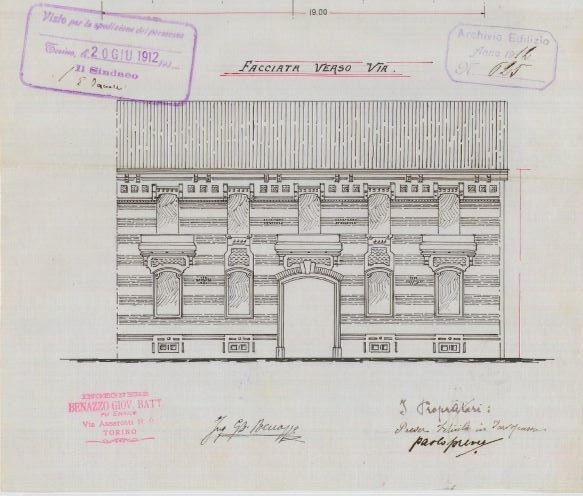 19.00
Visto per la spedizione del permesso
Torino, li 20 GIU 1912 191
Il Sindaco
Archivio Edilizio
Anno 1912
N. 625
FACCIATA VERSO VIA.
INGEGNERE
BENAZZO GIOV. BATT.
FU EMILE
Via Assarotti N. 6
TORINO
Ing GB Benazzo
I Proprietari:
in